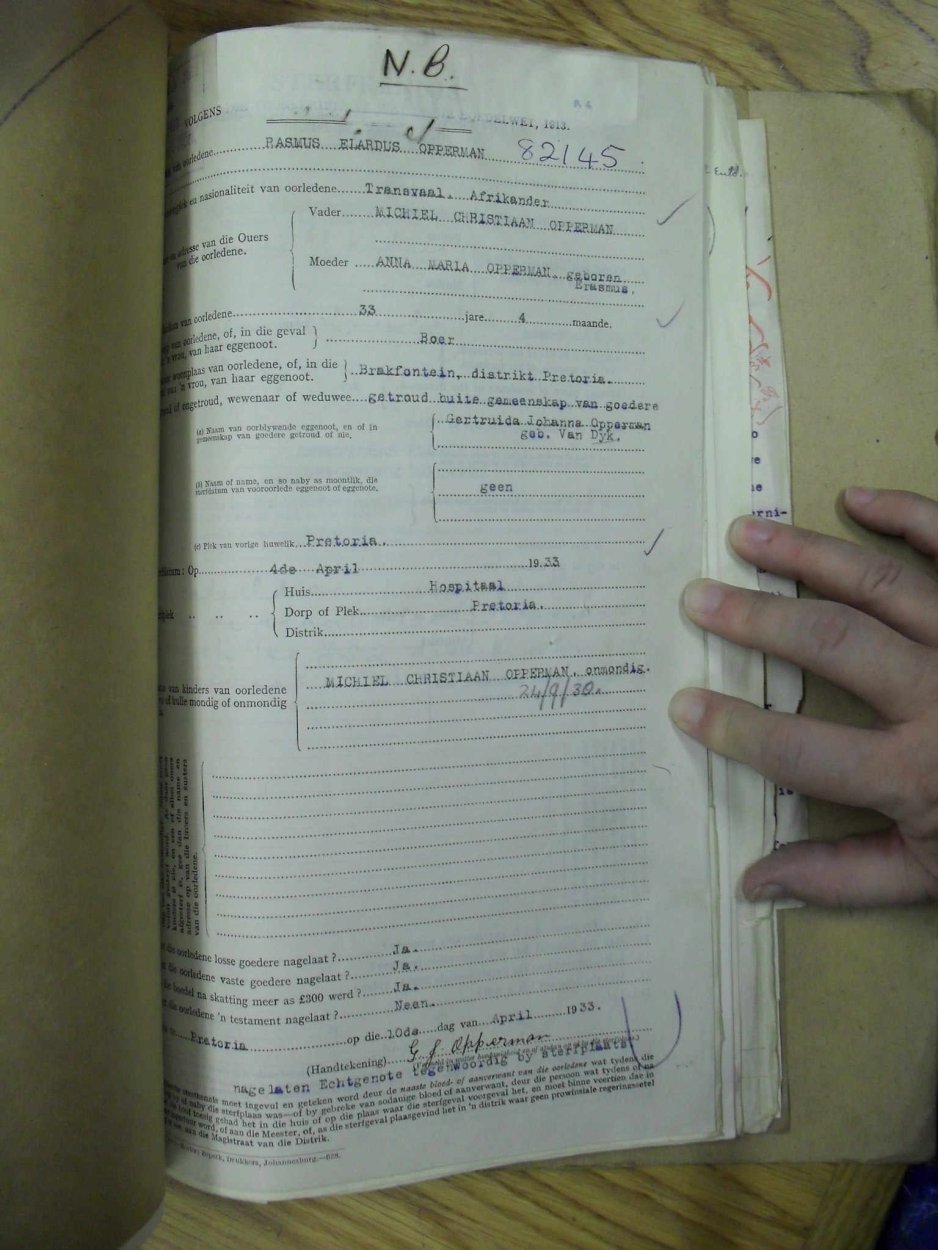 N.B.
VOLGENS
DELWET, 1913.
oorledene RASMUS ELARDUS OPPERMAN 82/45
en nasionaliteit van oorledene Transvaal. Afrikander
Vader MICHIEL CHRISTIAAN OPPERMAN
adresse van die Ouers
van die oorledene.
Moeder ANNA MARIA OPPERMAN geboren
Erasmus.
van oorledene 33 jare 4 maande.
van oorledene, of, in die geval
'n vrou, van haar eggenoot. Boer
woonplaas van oorledene, of, in die
'n vrou, van haar eggenoot. Brakfontein, distrikt Pretoria.
of ongetroud, wewenaar of weduwee getroud buite gemeenskap van goedere
(a) Naam van oorblywende eggenoot, en of in
gemeenskap van goedere getroud of nie.
Gertruida Johanna Opperman
geb. Van Dyk.
(b) Naam of name, en so naby as moontlik, die
sterfdatum van vooroorlede eggenoot of eggenote.
geen
(c) Plek van vorige huwelik Pretoria.
Op 4de April 1933
Huis Hospitaal
Dorp of Plek Pretoria.
Distrik
MICHIEL CHRISTIAAN OPPERMAN, onmondig.
24/9/30.
van kinders van oorledene
of hulle mondig of onmondig
van die oorledene.
die oorledene losse goedere nagelaat? Ja.
die oorledene vaste goedere nagelaat? Ja.
boedel na skatting meer as £300 werd? Ja.
die oorledene 'n testament nagelaat? Neen.
Pretoria op die 10de dag van April 1933.
(Handtekening) G J Opperman
nagelaten Echtgenote tegenwoordig by sterfplaats
moet ingevul en geteken word deur de naaste bloed- of aanverwant van die oorledene wat tydens die
sterfplaas was—of by gebreke van sodanige bloed of aanverwant, deur die persoon wat tydens of na
gehad het in die huis of op die plaas waar die sterfgeval voorgeval het, en moet binne veertien dae in
word, of aan die Meester, of, as die sterfgeval plaasgevind het in 'n distrik waar geen provinsiale regeringsetel
aan die Magistraat van die Distrik.
Drukkers, Johannesburg.